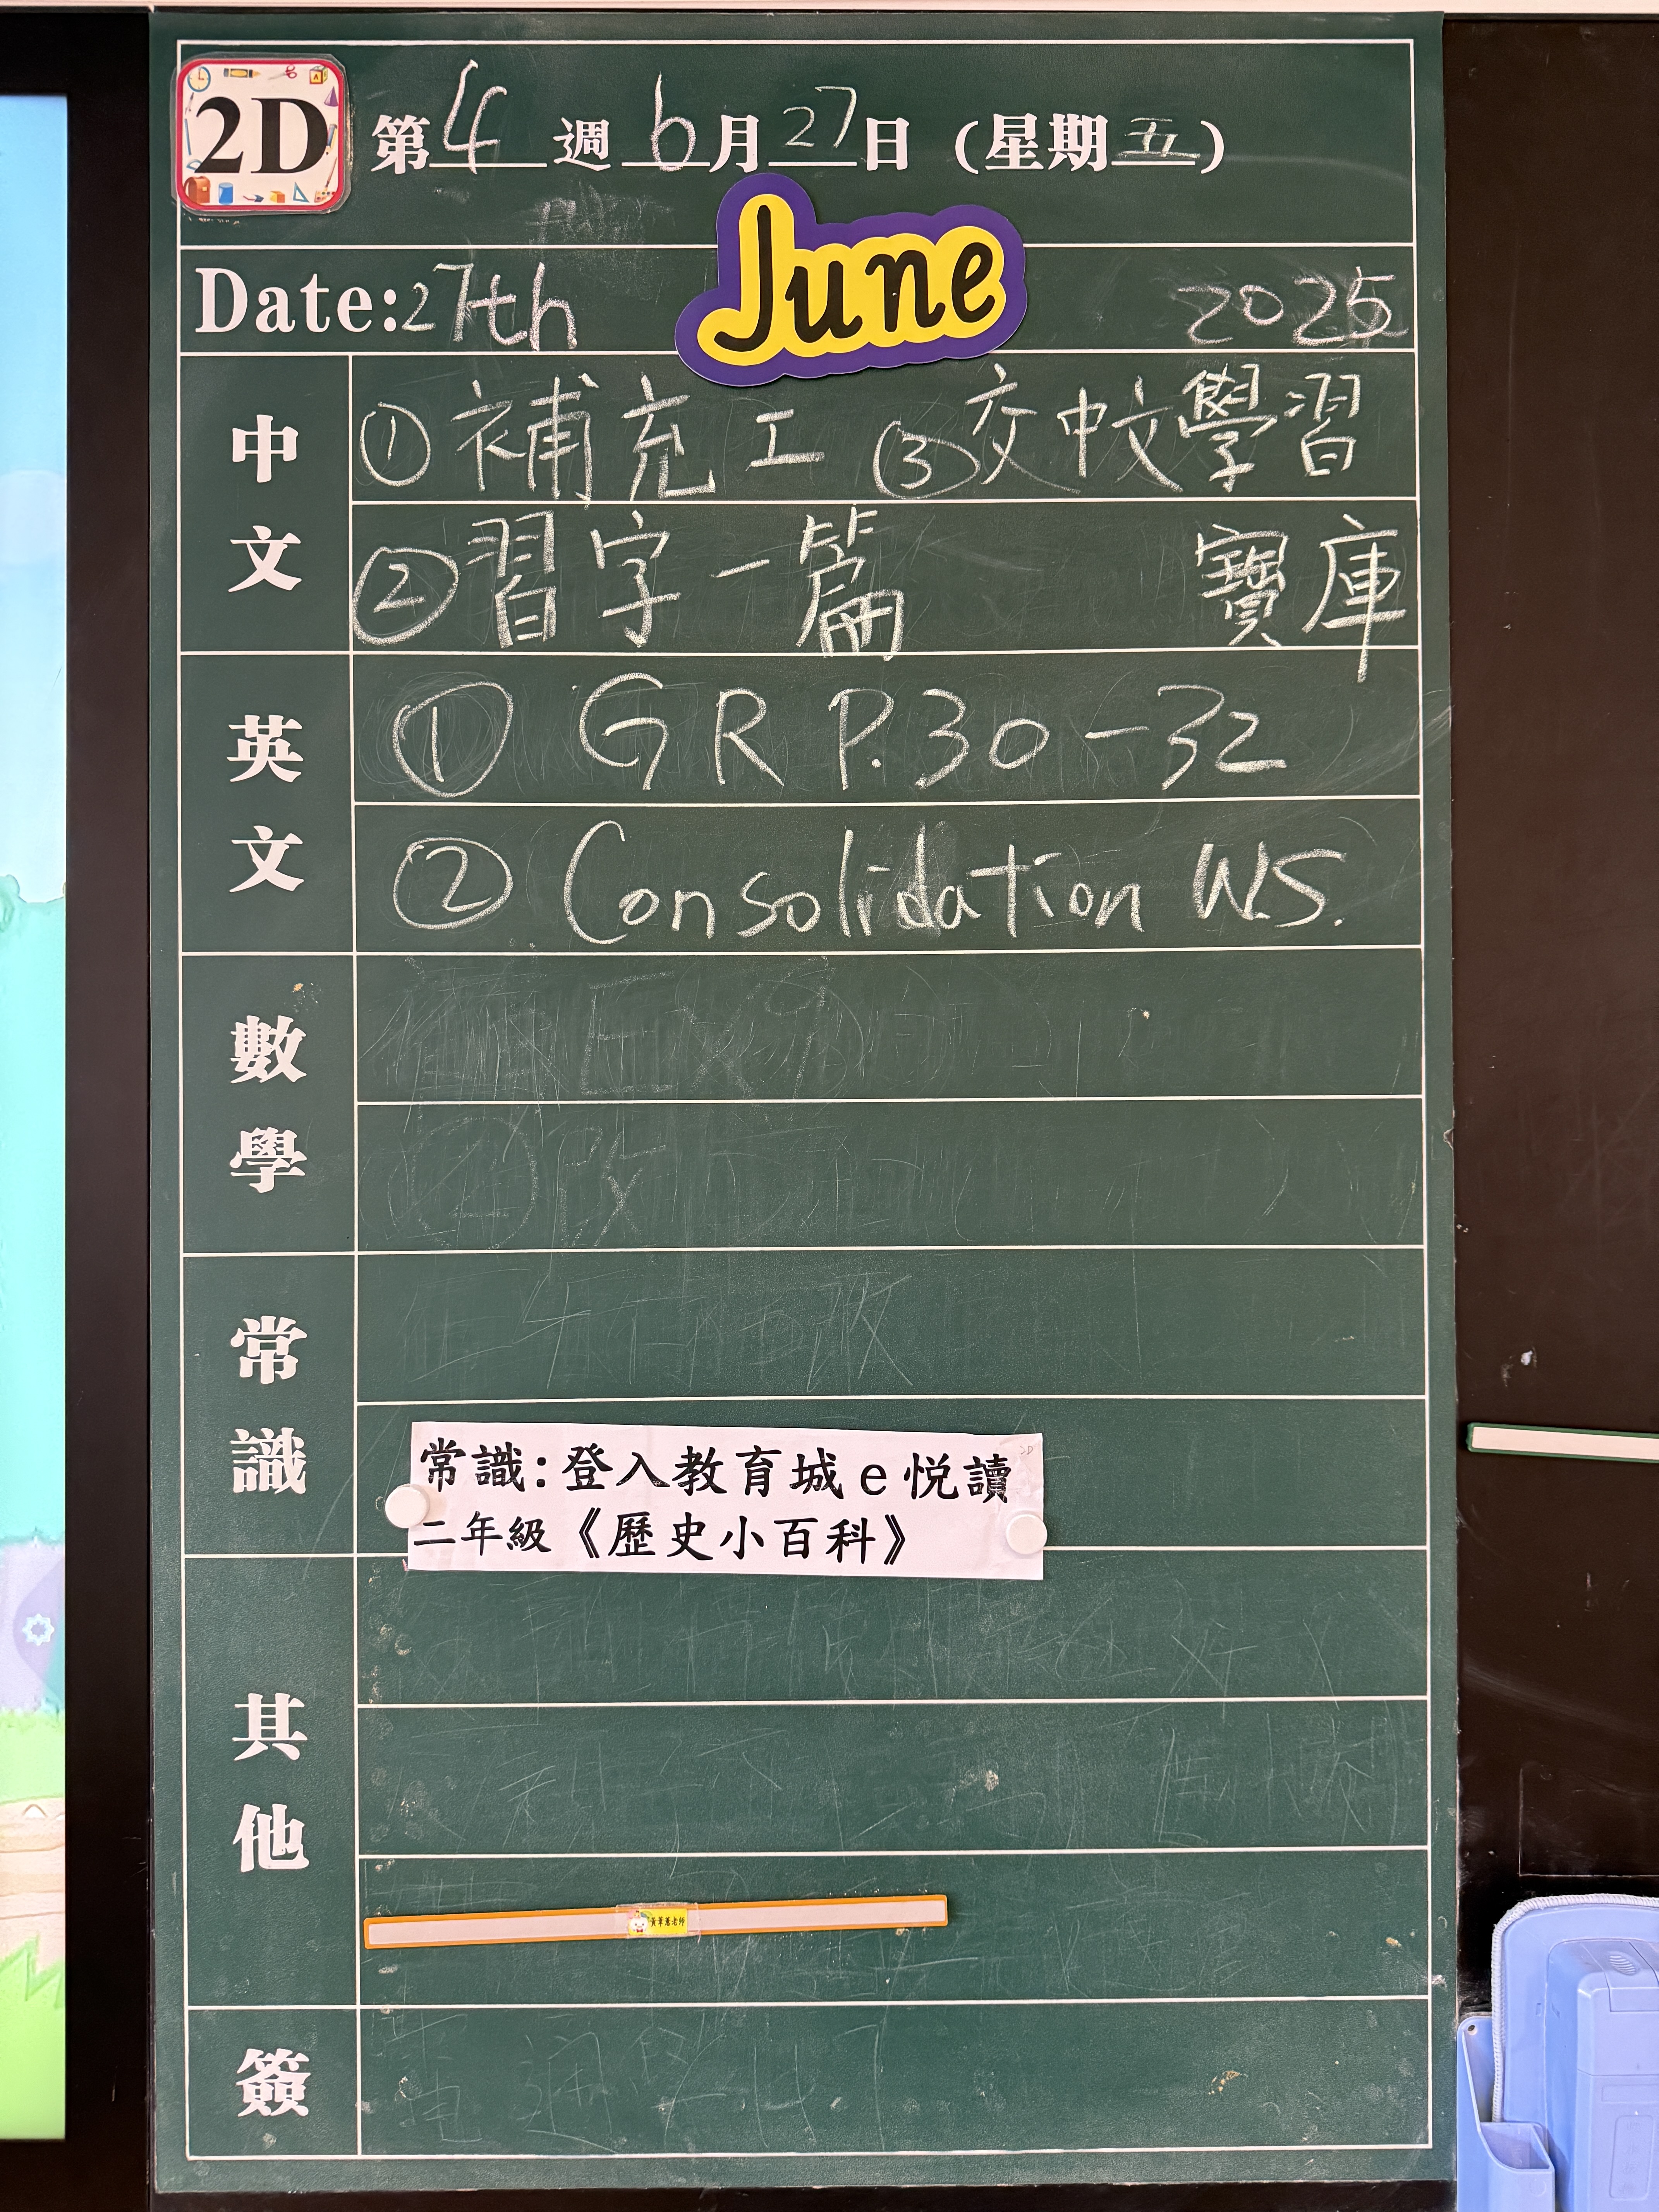 2D
第4週6月27日(星期五)
Date:27th June 2025
中文
①補充工 ③交中文學習
②習字一篇 寶庫
英文
① GR P.30-32
② Consolidation W.S.
數學
常識
常識:登入教育城e悅讀
二年級《歷史小百科》
其他
簽